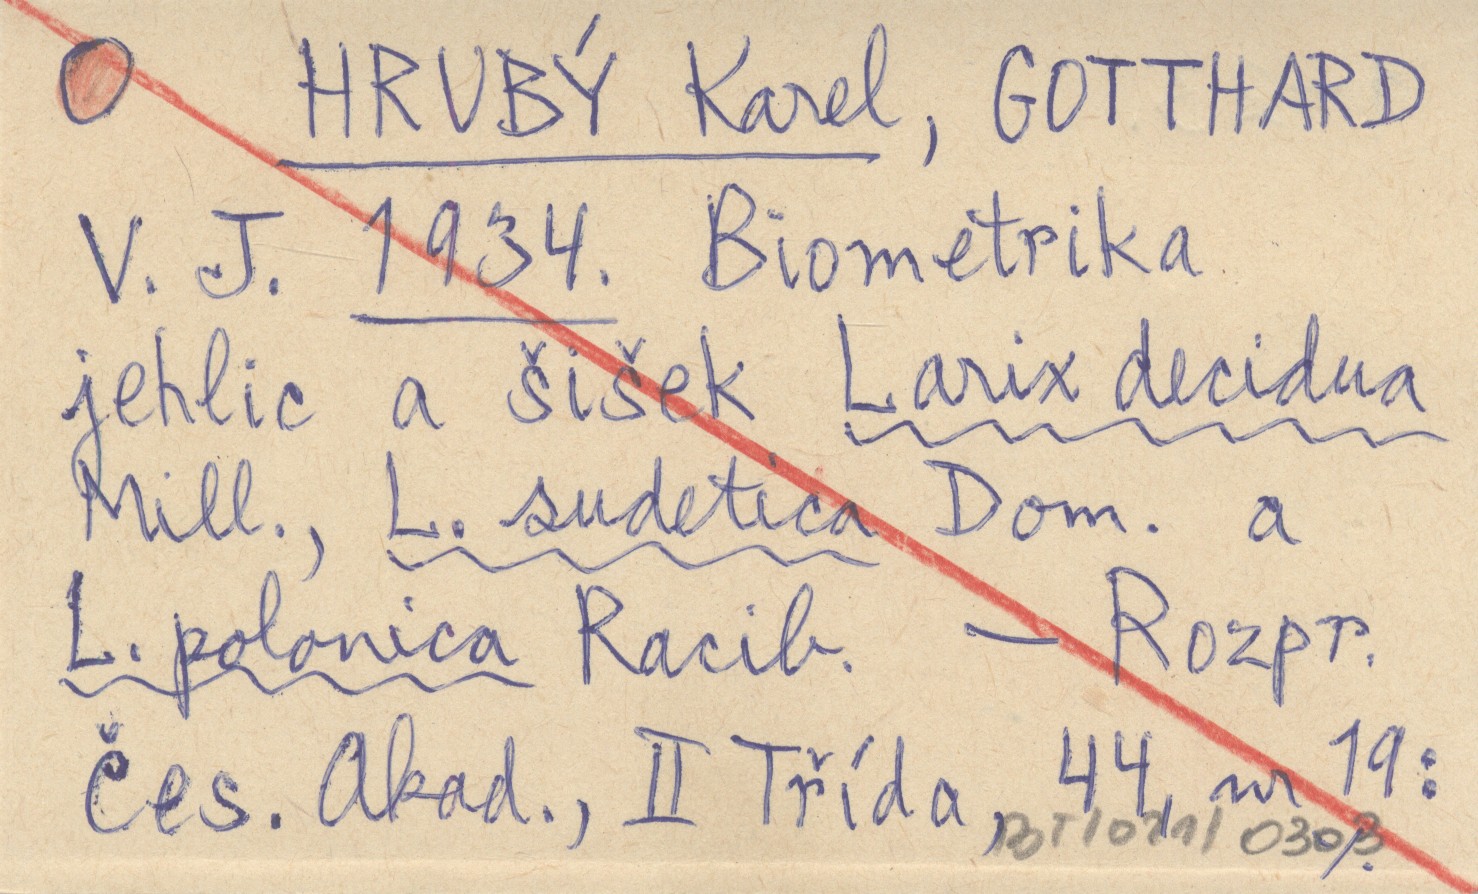 HRUBÝ Karel, GOTTHARD
V. J. 1934. Biometrika
jehlic a šišek Larix decidua
Mill., L. sudetica Dom. a
L. polonica Racib. — Rozpr.
Čes. Akad., II Třída, 44, nr 19: